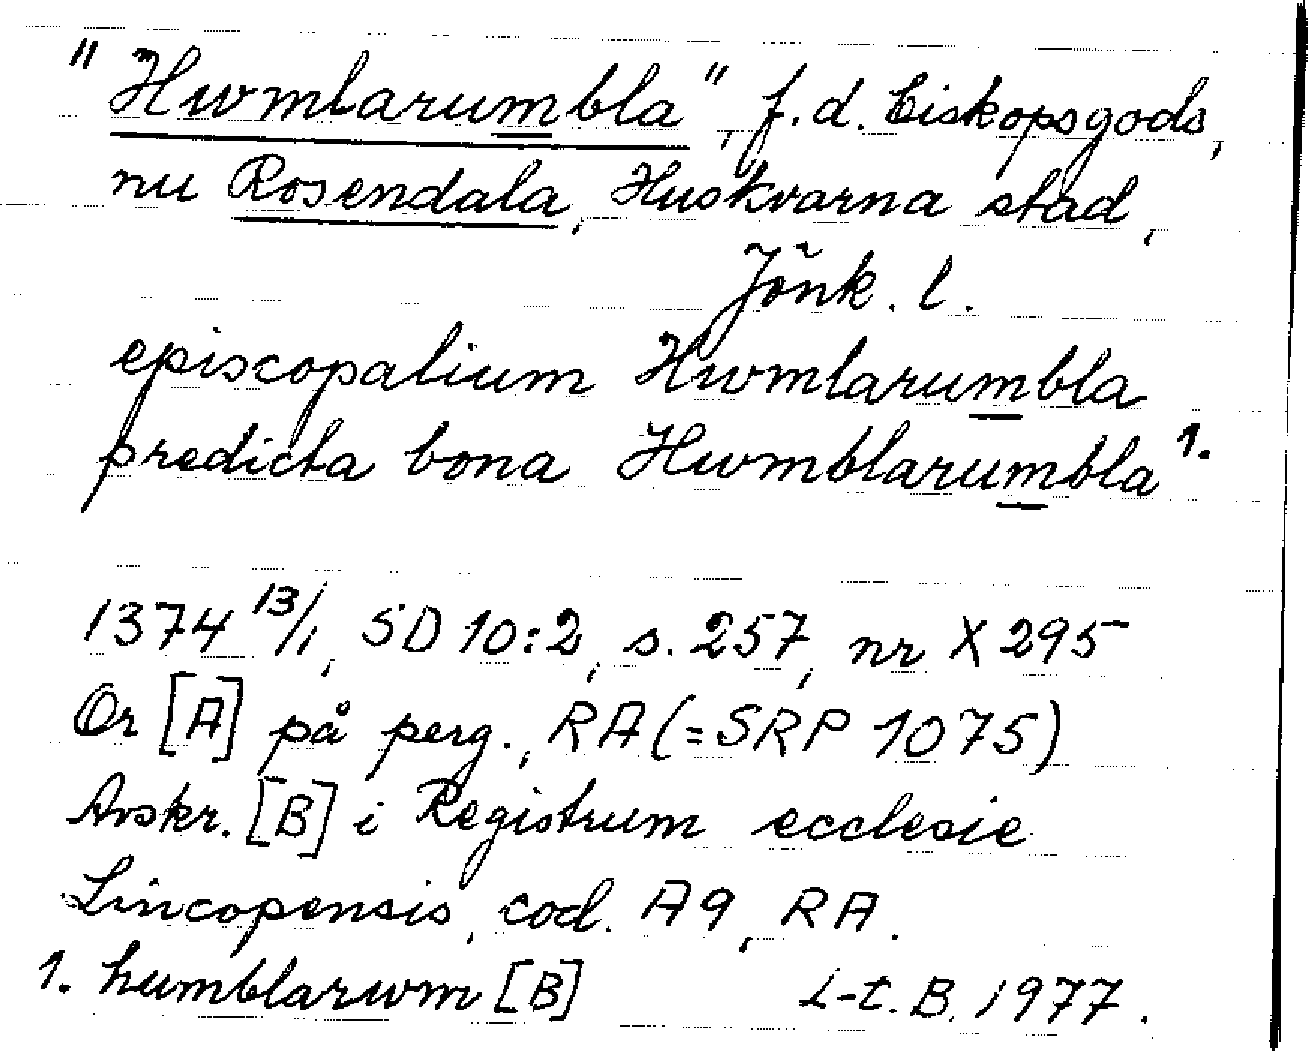 "Hwmlarumbla", f.d. biskopsgods,
nu Rosendala, Huskvarna stad,
Jönk. l.
episcopalium Hwmlarumbla
predicta bona Hwmblarumbla 1.
1374 13/1, SD 10:2, s. 257, nr X 295
Or [A] på perg., RA (=SRP 1075)
Avskr. [B] i Registrum ecclesie
Lincopensis, cod. A9, RA.
1. humblarwm [B] L-C. B. 1977.